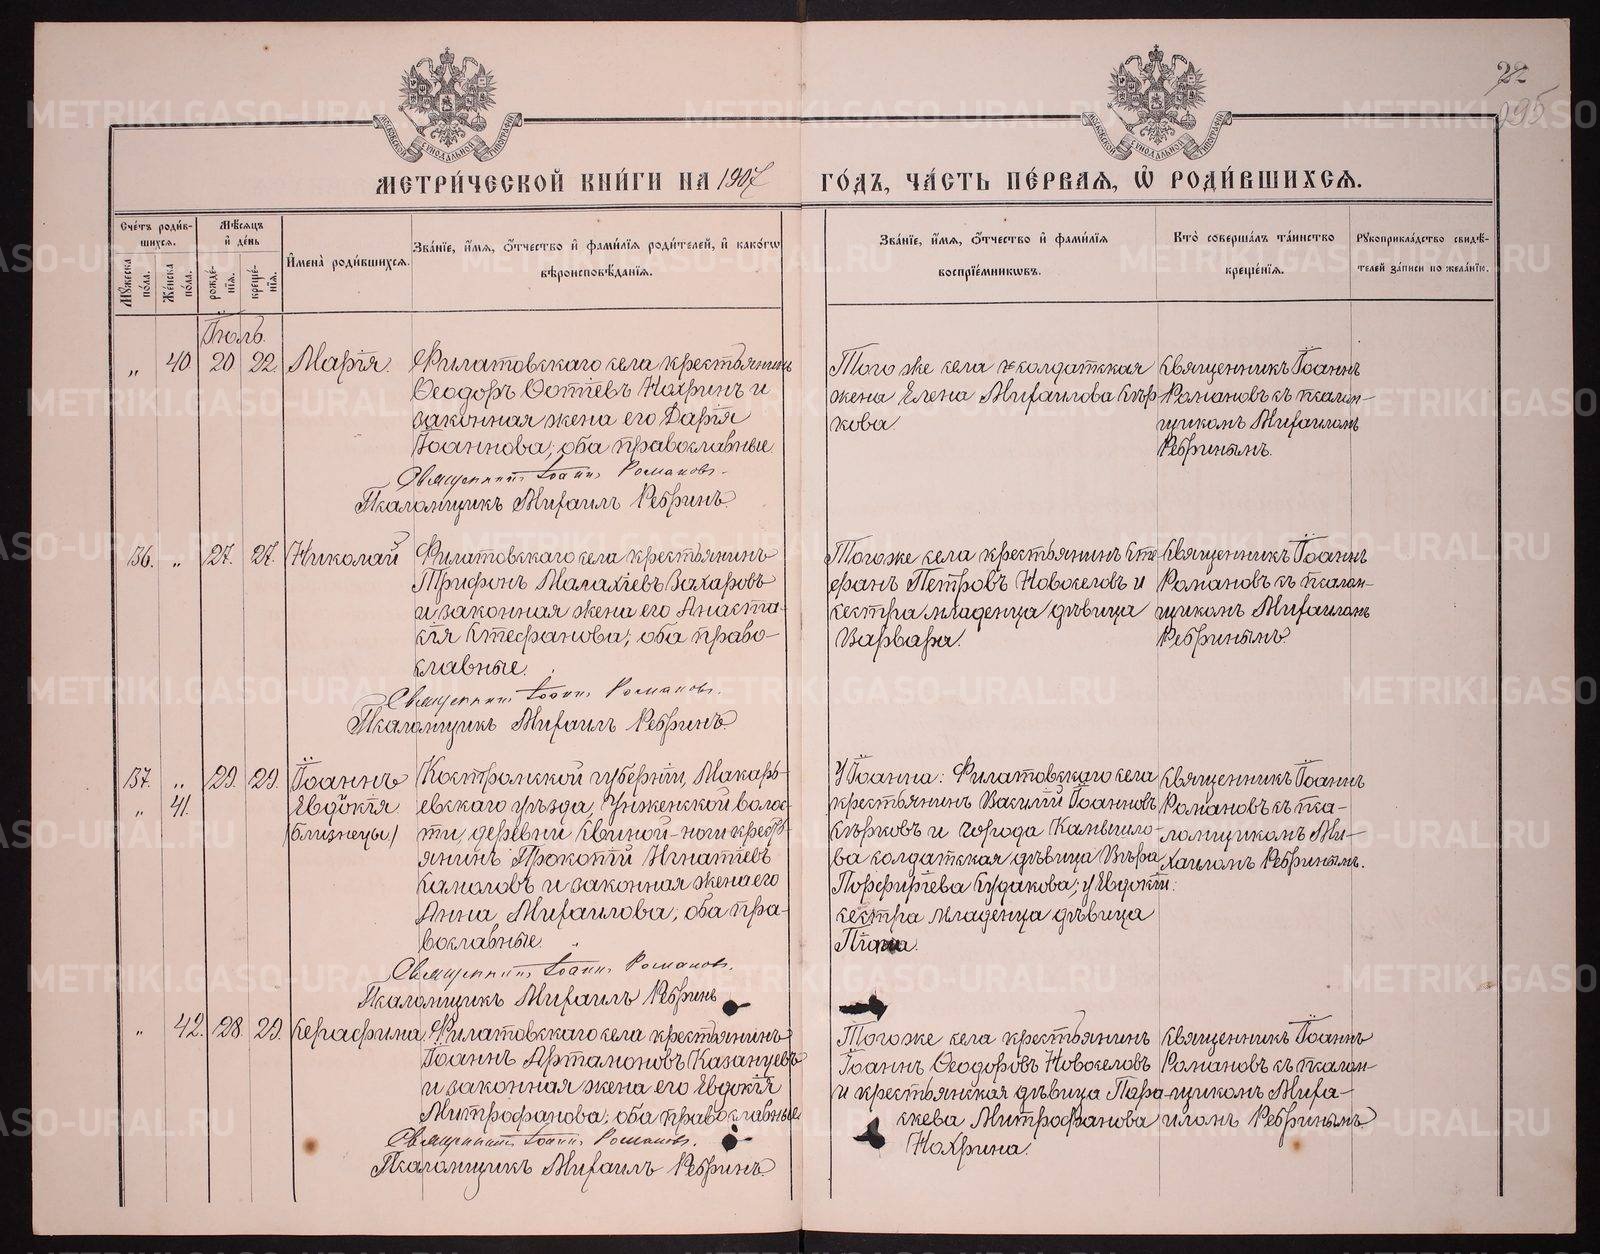 72
195
МОСКОВСКОЙ СУНОДАЛЬНОЙ ТИПОГРАФІИ
МОСКОВСКОЙ СУНОДАЛЬНОЙ ТИПОГРАФІИ
МЕТРИ́ЧЕСКОЙ КНИ́ГИ НА 1907 ГО́ДЪ, ЧА́СТЬ ПЕ́РВАЯ, Ѡ҆ РОДИ́ВШИХСЯ.
Сче́тъ роди́в-
шихся.
Мѣ́сяцъ
и҆ де́нь
Мꙋ́жеска по́ла.
Же́нска по́ла.
рожде́-
нїя.
креще́-
нїя.
И҆мена̀ роди́вшихся.
Зва́нїе, и҆́мя, ѻ҆́тчество и҆ фами́лїя роди́телей, и҆ како́гѡ
вѣроисповѣ́данїя.
Зва́нїе, и҆́мя, ѻ҆́тчество и҆ фами́лїя
воспрїе́мникѡвъ.
Кто̀ соверша́лъ та́инство
креще́нїя.
Рꙋкоприкла́дство свидѣ́-
телей за́писи по жела́нїю.
Іюль.
„ 40. 20 22. Марія.
Филатовскаго села крестьянинъ
Ѳеодоръ Ѳотіевъ Нохринъ и
законная жена его Дарія
Іоаннова; оба православные.
Священникъ Іоаннъ Романовъ.
Псаломщикъ Михаилъ Ребринъ.
Того же села солдатская
жена Елена Михаилова Сыр
кова
Священникъ Іоаннъ
Романовъ съ псалом-
щикомъ Михаиломъ
Ребринымъ.
36. „ 27. 27. Николай
Филатовскаго села крестьянинъ
Трифонъ Малахіевъ Захаровъ
и законная жена его Анаста-
сія Стефанова; оба право-
славные.
Священникъ Іоаннъ Романовъ.
Псаломщикъ Михаилъ Ребринъ.
Того же села крестьянинъ Сте
фанъ Петровъ Новоселовъ и
сестра младенца дѣвица
Варвара.
Священникъ Іоаннъ
Романовъ съ псалом-
щикомъ Михаиломъ
Ребринымъ
37. „ 29. 29. Іоаннъ
„ 41. Евдокія
/близнецы/
Костромской губерніи, Макарь-
евскаго уѣзда, Унженской волос-
ти, деревни Свиной-ноги кресть-
янинъ Прокопій Игнатіевъ
Самоловъ и законная жена его
Анна Михаилова; оба пра-
вославные.
Священникъ Іоаннъ Романовъ.
Псаломщикъ Михаилъ Ребринъ
У Іоанна: Филатовскаго села
крестьянинъ Василій Іоанновъ
Сырковъ и города Камышло-
ва солдатская дѣвица Вѣра
Порфиріева Кудакова; у Евдокіи:
сестра младенца дѣвица
Священникъ Іоаннъ
Романовъ съ пса-
ломщикомъ Ми-
хаиломъ Ребринымъ.
„ 42. 28. 29. Серафима
Филатовскаго села крестьянинъ
Іоаннъ Артамоновъ Казанцевъ
и законная жена его Евдокія
Митрофанова; оба православные
Священникъ Іоаннъ Романовъ.
Псаломщикъ Михаилъ Ребринъ.
Того же села крестьянинъ
Іоаннъ Ѳеодоровъ Новоселовъ
и крестьянская дѣвица Пара-
скева Митрофанова
Нохрина.
Священникъ Іоаннъ
Романовъ съ псалом-
щикомъ Миха-
иломъ Ребринымъ
METRIKI.GASO-URAL.RU